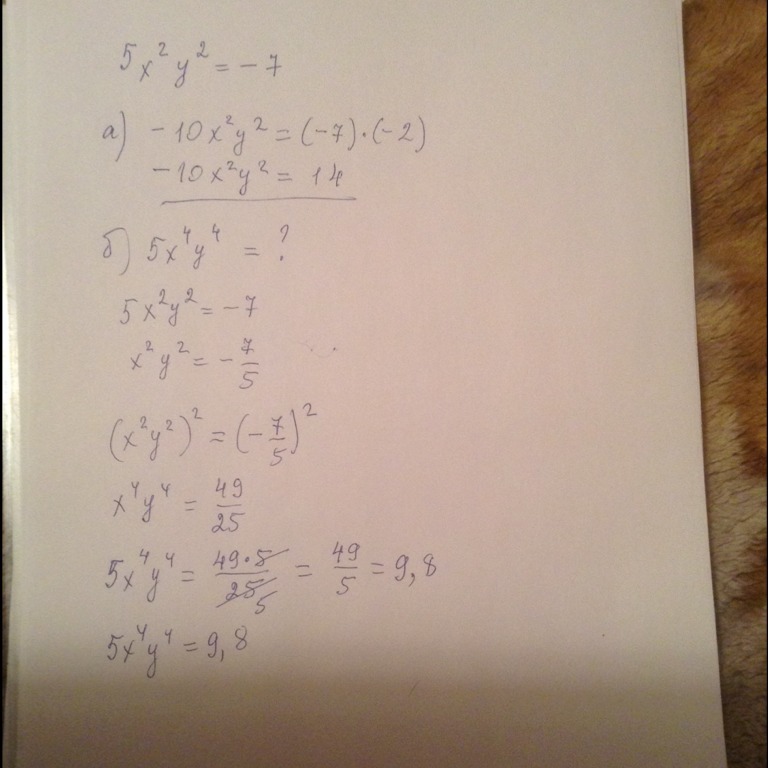 5x²y² = -7
а) -10x²y² = (-7)·(-2)
-10x²y² = 14
б) 5x⁴y⁴ = ?
5x²y² = -7
x²y² = -7/5
(x²y²)² = (-7/5)²
x⁴y⁴ = 49/25
5x⁴y⁴ = 49·5/25 5 = 49/5 = 9,8
5x⁴y⁴ = 9,8